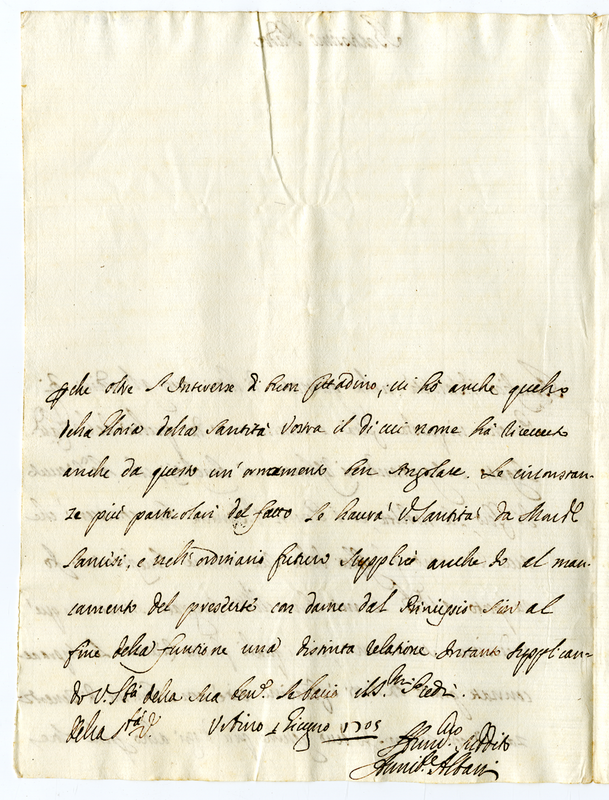 che oltre l'Interesse di buon Cittadino, vi hò anche quello
della Gloria della Santità Vostra il di cui nome hà ricevuto
anche da questo un' ornamento ben singolare. Le circonstan-
ze più particolari del fatto le haurà V. Santità da Mons.r
e nell' ordinario futuro supplirò anche Io al man-
camento del presente con darne dal Principio sin al
fine della funzione una distinta relatione. Intanto supplican-
do V. S.tà della sua Ben.e le bacio i S.mi Piedi.
della S.tà V. Urbino 1 Giugno 1705
Hum.mo Suddito
Annib.e Albani